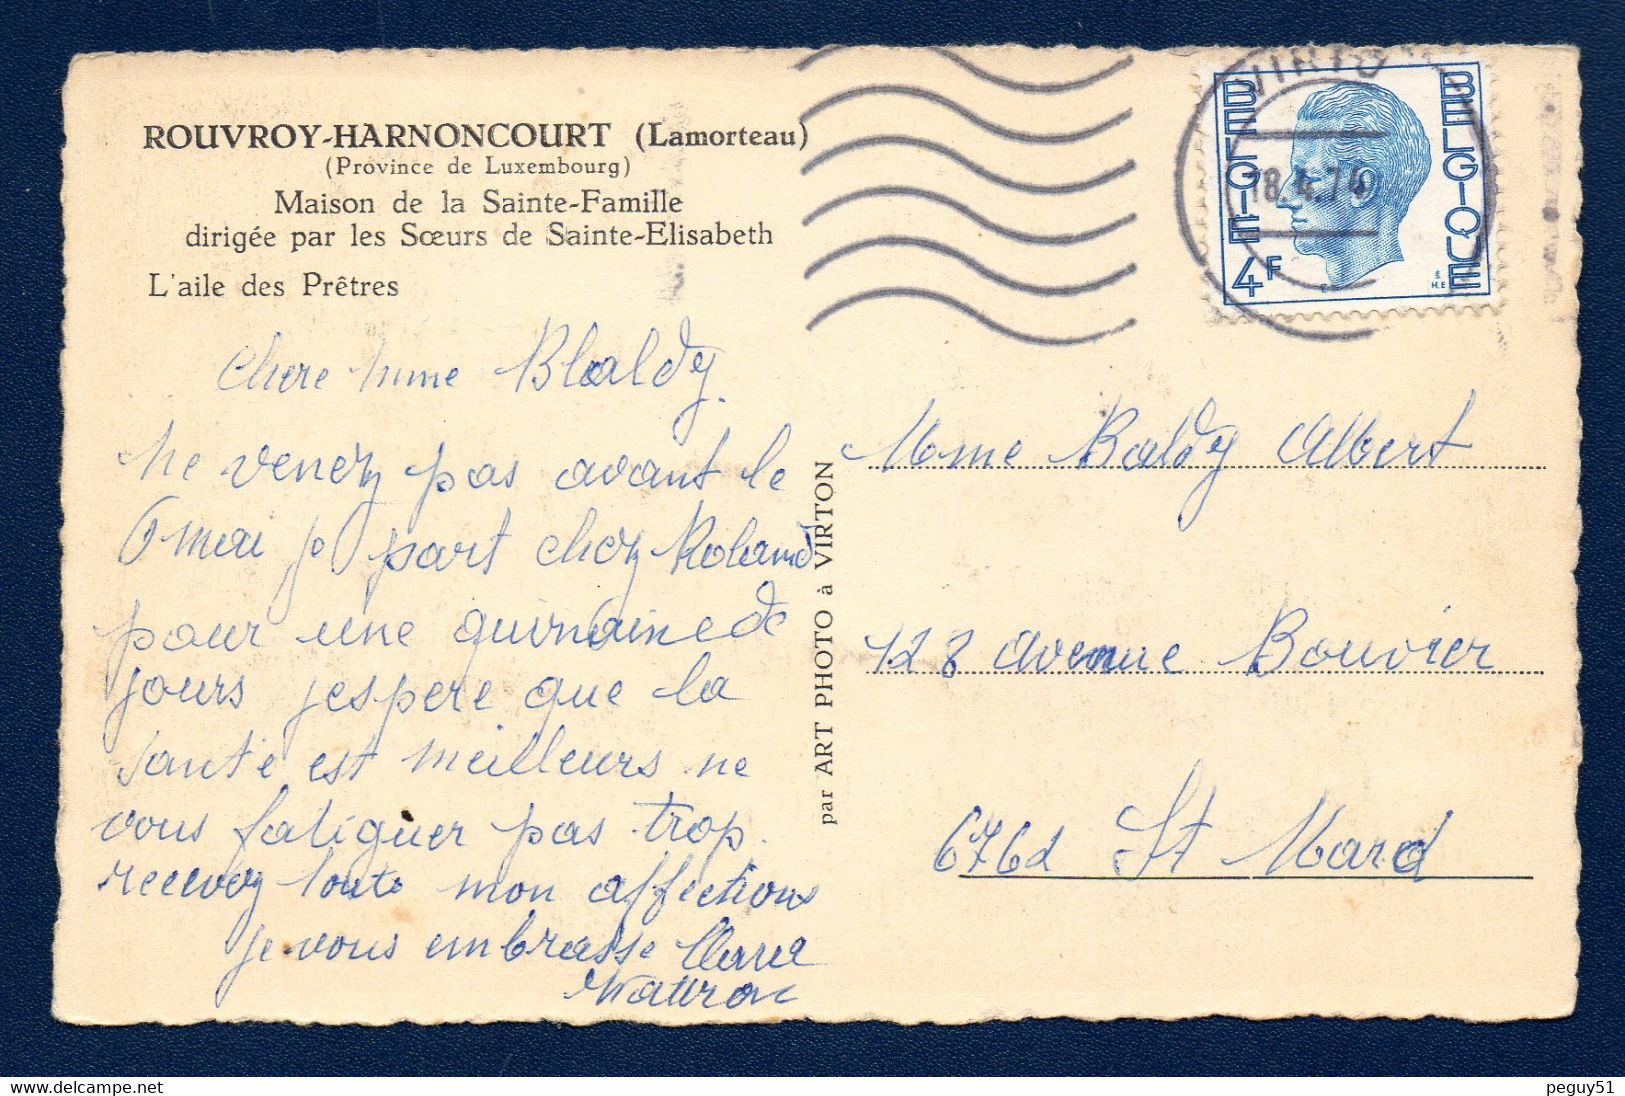 ROUVROY-HARNONCOURT (Lamorteau)
(Province de Luxembourg)
Maison de la Sainte-Famille
dirigée par les Sœurs de Sainte-Elisabeth
L'aile des Prêtres
Chere Mme Blaldy
Ne venez pas avant le
6 mai je part chez Roland
pour une quinzaine de
jours jespere que la
santé est meilleurs ne
vous fatiguer pas trop.
recevez toute mon affections
je vous embrasse
par ART PHOTO à VIRTON
BELGIE BELGIQUE
4F
18.4.74
Mme Baldy Albert
128 avenue Bouvier
6762 St Mard
peguy51